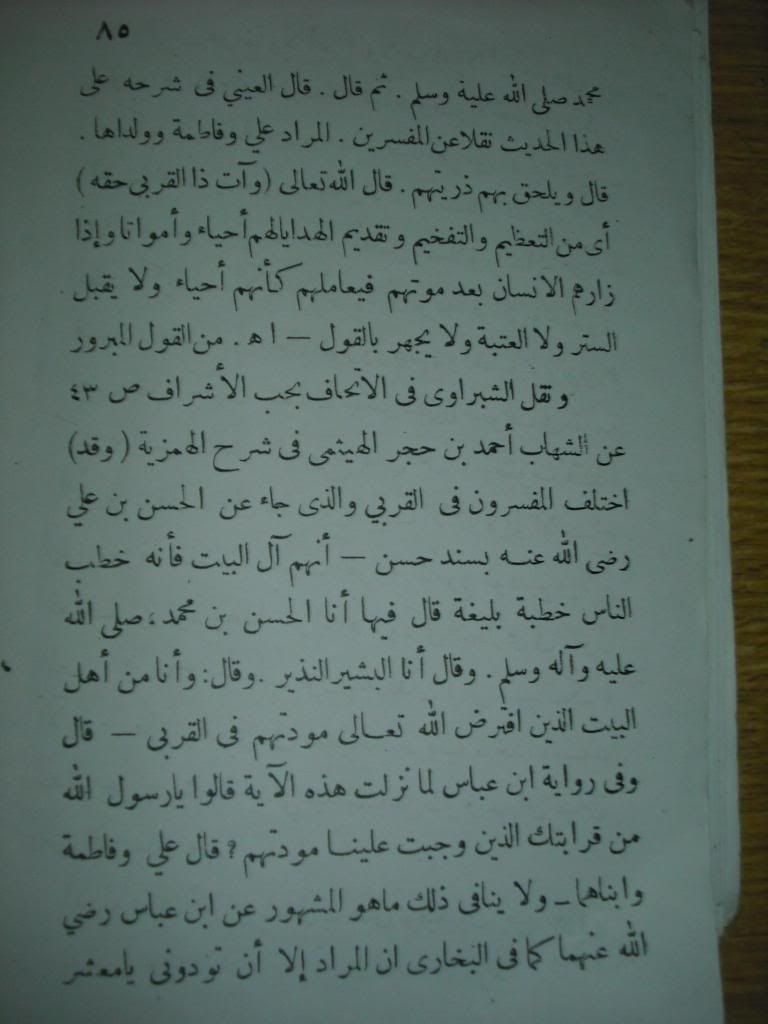 ٨٥
محمد صلى الله علية وسلم . ثم قال . قال العيني فى شرحه على
هذا الحديث نقلا عن المفسرين . المراد علي وفاطمة وولداها .
قال ويلحق بهم ذريتهم . قال الله تعالى (وآت ذا القربى حقه)
أى من التعظيم والتفخيم وتقديم الهدايا لهم أحياء وأمواتا وإذا
زارهم الانسان بعد موتهم فيعاملهم كأنهم أحياء ولا يقبل
الستر ولا العتبة ولا يجهر بالقول — ا ه . من القول المبرور
ونقل الشبراوى فى الاتحاف بحب الأشراف ص ٤٣
عن الشهاب أحمد بن حجر الهيثمى فى شرح الهمزية (وقد)
اختلف المفسرون فى القربي والذى جاء عن الحسن بن علي
رضى الله عنه بسند حسن — أنهم آل البيت فأنه خطب
الناس خطبة بليغة قال فيها أنا الحسن بن محمد ، صلى الله
عليه وآله وسلم . وقال أنا البشير النذير . وقال : وأنا من أهل
البيت الذين افترض الله تعالى مودتهم فى القربى — قال
وفى رواية ابن عباس لما نزلت هذه الآية قالوا يارسول الله
من قرابتك الذين وجبت علينا مودتهم ؟ قال علي وفاطمة
وابناهما — ولا ينافى ذلك ماهو المشهور عن ابن عباس رضي
الله عنهما كما فى البخارى ان المراد إلا أن تودونى يامعشر